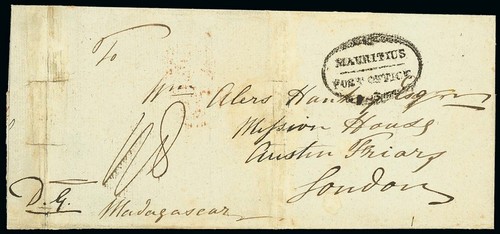 To
MAURITIUS
POST OFFICE
Wm Alers Hankey Esqr
Mission House
Austin Friars
London
108
D.G.
Madagascar